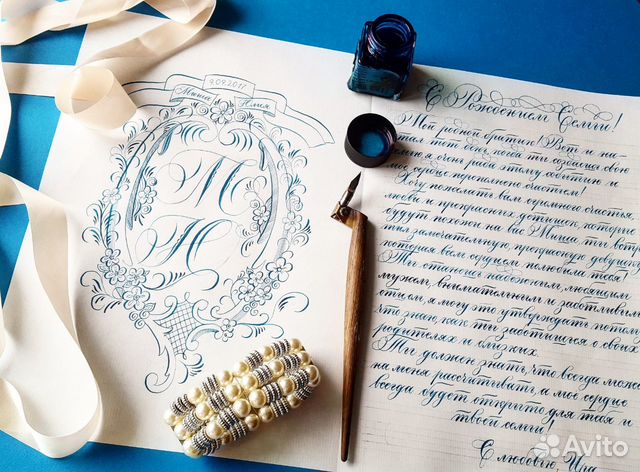 9.09.2017
Миша Юлия
М
Ю
С Рождением Семьи!
Мой родной братик! Вот и на-
стал тот день, когда ты создаешь свою
семью, я очень рада этому событию и
мое сердце переполнено счастьем!
Хочу пожелать вам огромного счастья,
любви и прекрасных детишек, которые
будут похожи на вас. Миша, ты встр
замечательную, прекрасную девушку
которая всем сердцем полюбила тебя!
Ты станешь надежным, любящим
мужем, внимательным и заботливым
отцом, я могу это утверждать, потому
что знаю, как ты заботишься о своих
родителях и близких.
Ты должен знать, что всегда може
на меня рассчитывать, а мое сердце
всегда будет открыто для тебя и
твоей семьи!
С любовью, Ири
Avito